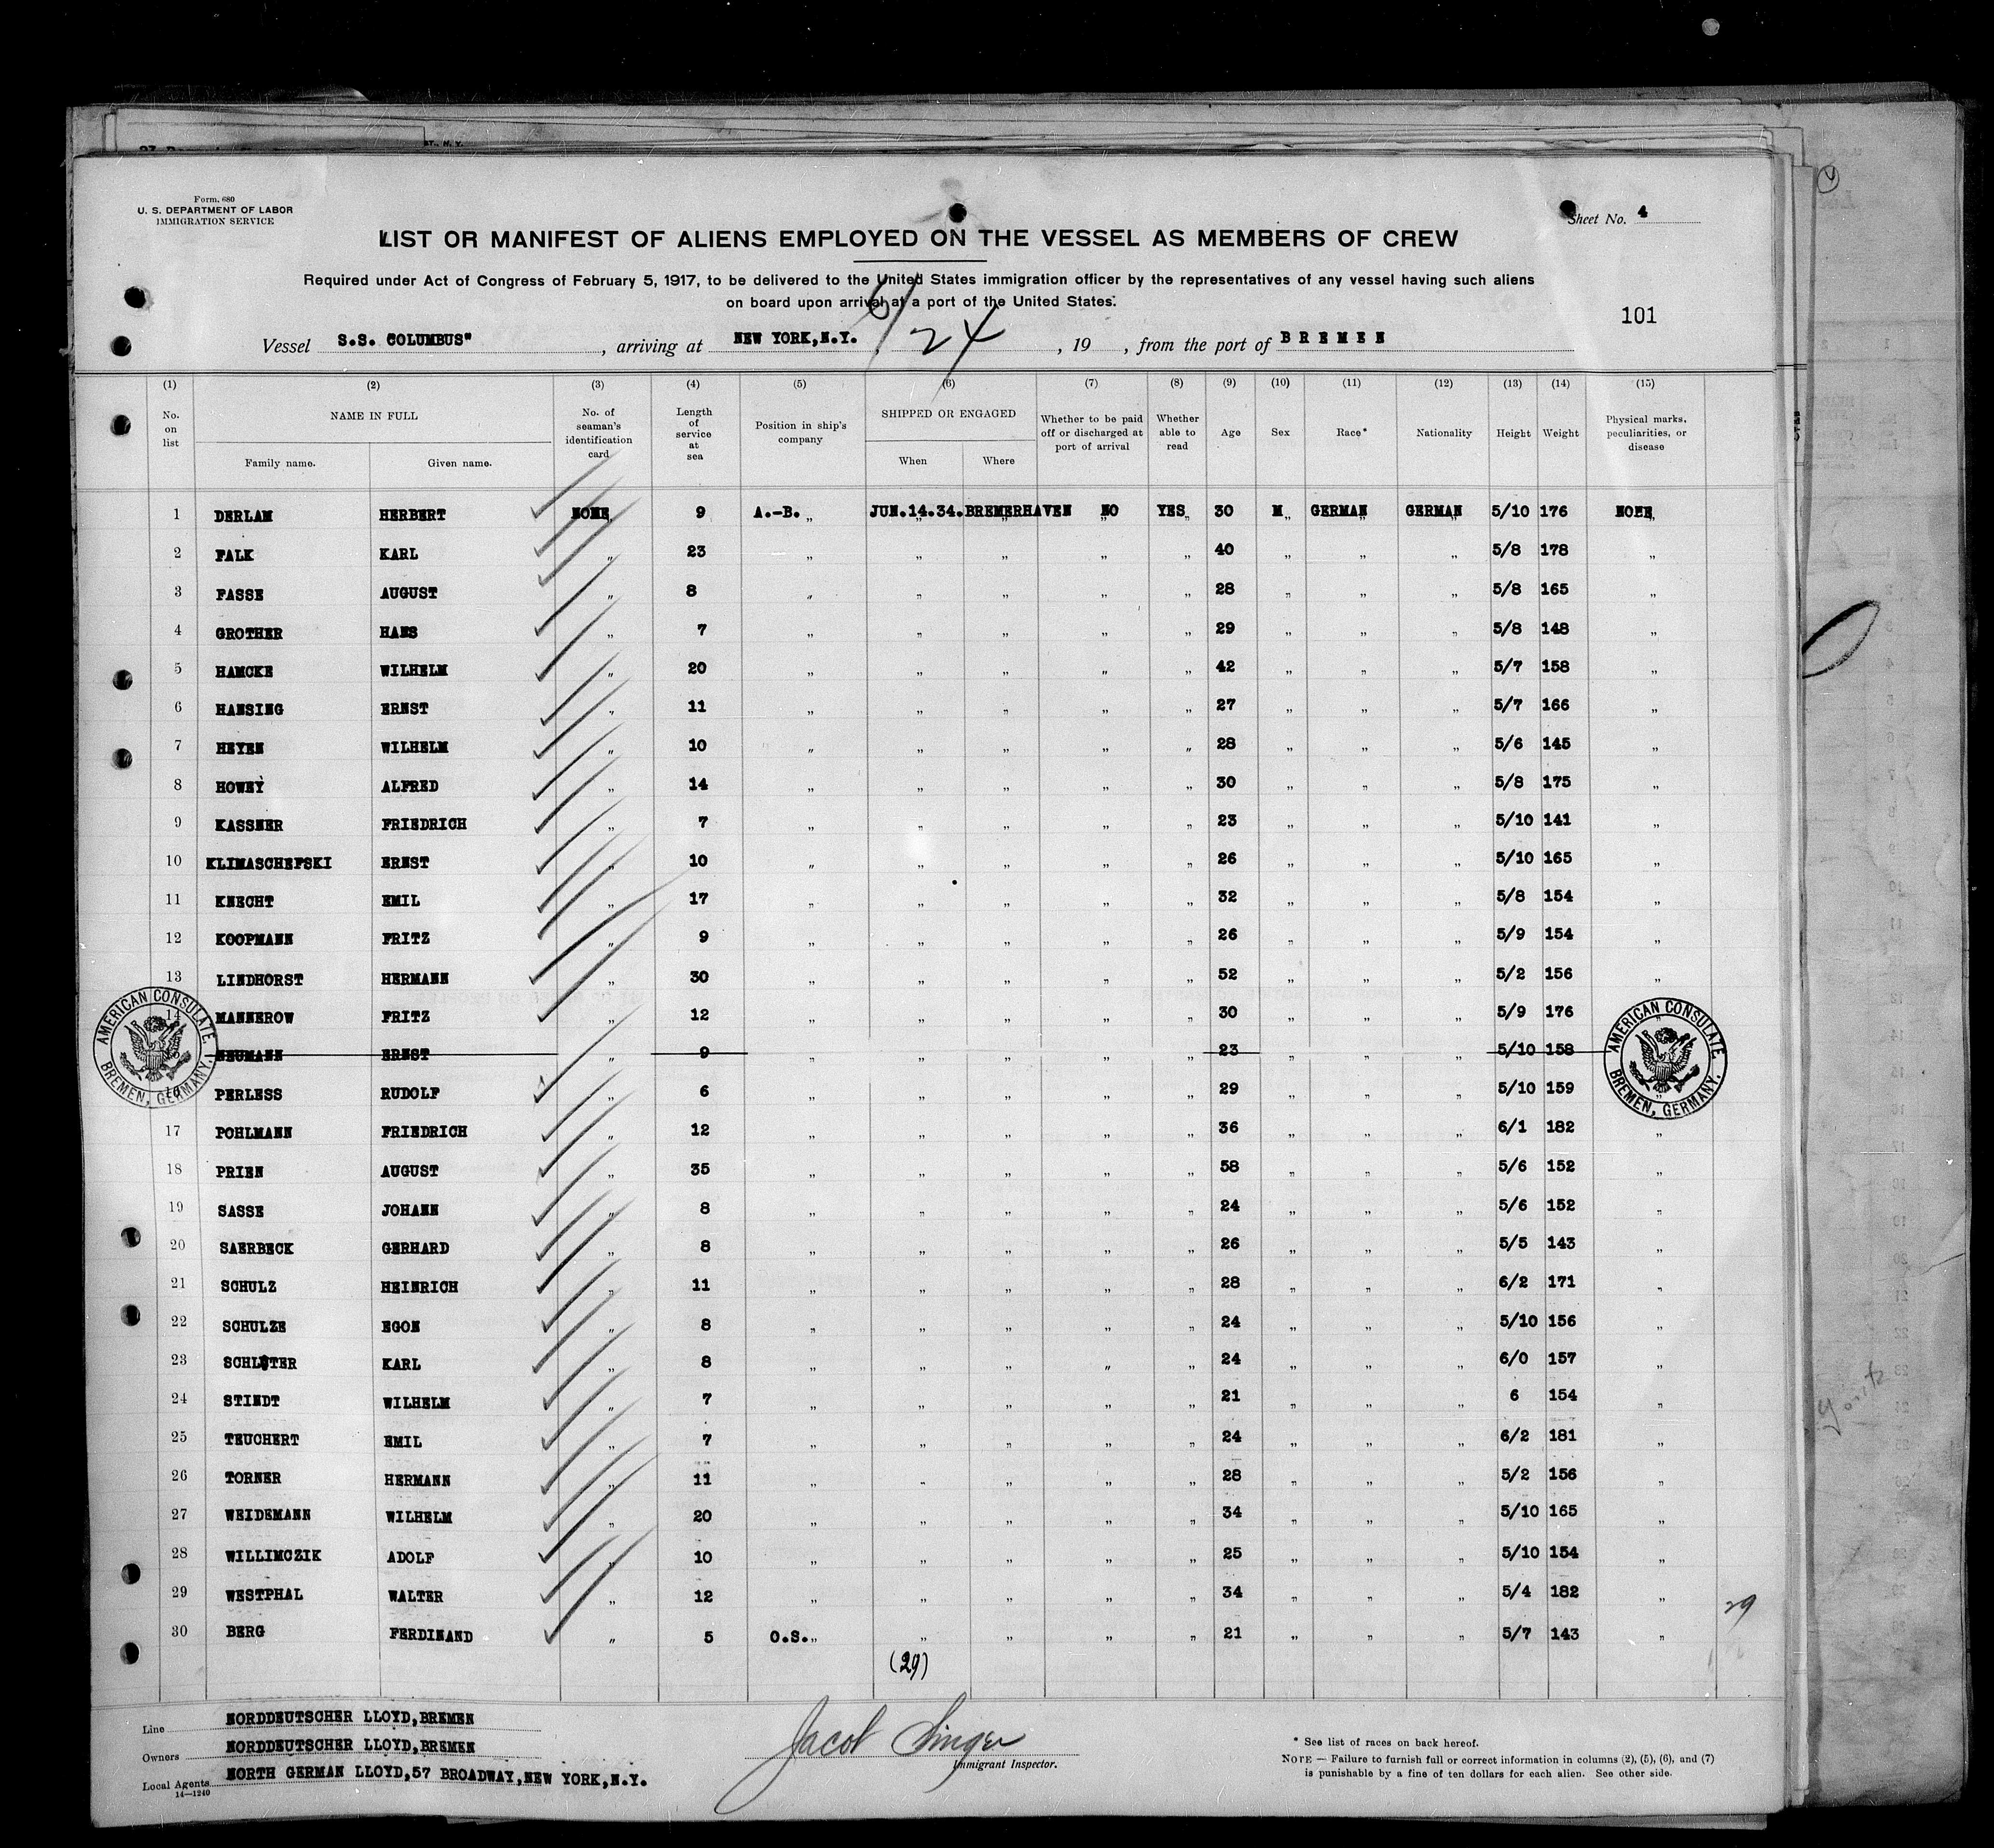 Form. 680
U. S. DEPARTMENT OF LABOR
IMMIGRATION SERVICE
Sheet No. 4
LIST OR MANIFEST OF ALIENS EMPLOYED ON THE VESSEL AS MEMBERS OF CREW
Required under Act of Congress of February 5, 1917, to be delivered to the United States immigration officer by the representatives of any vessel having such aliens
on board upon arrival at a port of the United States.
101
Vessel S.S. COLUMBUS" , arriving at NEW YORK,N.Y. , 6/24 , 19 , from the port of BREMEN
(1) (2) (3) (4) (5) (6) (7) (8) (9) (10) (11) (12) (13) (14) (15)
No. on list NAME IN FULL Family name. Given name. No. of seaman's identification card Length of service at sea Position in ship's company SHIPPED OR ENGAGED When Where Whether to be paid off or discharged at port of arrival Whether able to read Age Sex Race* Nationality Height Weight Physical marks, peculiarities, or disease
1 DERLAM HERBERT NONE 9 A.-B. „ JUN.14.34. BREMERHAVEN NO YES 30 M GERMAN GERMAN 5/10 176 NONE
2 FALK KARL „ 23 „ „ „ „ „ 40 „ „ „ 5/8 178 „
3 FASSE AUGUST „ 8 „ „ „ „ „ 28 „ „ „ 5/8 165 „
4 GROTHER HANS „ 7 „ „ „ „ „ 29 „ „ „ 5/8 148 „
5 HAMCKE WILHELM „ 20 „ „ „ „ „ 42 „ „ „ 5/7 158 „
6 HANSING ERNST „ 11 „ „ „ „ „ 27 „ „ „ 5/7 166 „
7 HEYEN WILHELM „ 10 „ „ „ „ „ 28 „ „ „ 5/6 145 „
8 HOWEY ALFRED „ 14 „ „ „ „ „ 30 „ „ „ 5/8 175 „
9 KASSNER FRIEDRICH „ 7 „ „ „ „ „ 23 „ „ „ 5/10 141 „
10 KLIMASCHEFSKI ERNST „ 10 „ „ „ „ „ 26 „ „ „ 5/10 165 „
11 KNECHT EMIL „ 17 „ „ „ „ „ 32 „ „ „ 5/8 154 „
12 KOOPMANN FRITZ „ 9 „ „ „ „ „ 26 „ „ „ 5/9 154 „
13 LINDHORST HERMANN „ 30 „ „ „ „ „ 52 „ „ „ 5/2 156 „
14 MANNEROW FRITZ „ 12 „ „ „ „ „ 30 „ „ „ 5/9 176 „
NEUMANN ERNST „ 9 „ „ „ „ „ 23 „ „ „ 5/10 158
PERLESS RUDOLF „ 6 „ „ „ „ „ 29 „ „ „ 5/10 159 „
17 POHLMANN FRIEDRICH „ 12 „ „ „ „ „ 36 „ „ „ 6/1 182 „
18 PRIEN AUGUST „ 35 „ „ „ „ „ 58 „ „ „ 5/6 152 „
19 SASSE JOHANN „ 8 „ „ „ „ „ 24 „ „ „ 5/6 152 „
20 SAERBECK GERHARD „ 8 „ „ „ „ „ 26 „ „ „ 5/5 143 „
21 SCHULZ HEINRICH „ 11 „ „ „ „ „ 28 „ „ „ 6/2 171 „
22 SCHULZE EGON „ 8 „ „ „ „ „ 24 „ „ „ 5/10 156 „
23 SCHLÜTER KARL „ 8 „ „ „ „ „ 24 „ „ „ 6/0 157 „
24 STINDT WILHELM „ 7 „ „ „ „ „ 21 „ „ „ 6 154 „
25 TEUCHERT EMIL „ 7 „ „ „ „ „ 24 „ „ „ 6/2 181 „
26 TORNER HERMANN „ 11 „ „ „ „ „ 28 „ „ „ 5/2 156 „
27 WEIDEMANN WILHELM „ 20 „ „ „ „ „ 34 „ „ „ 5/10 165 „
28 WILLIMCZIK ADOLF „ 10 „ „ „ „ „ 25 „ „ „ 5/10 154 „
29 WESTPHAL WALTER „ 12 „ „ „ „ „ 34 „ „ „ 5/4 182 „
29
30 BERG FERDINAND „ 5 O.S. „ „ „ „ „ 21 „ „ „ 5/7 143 „
(29)
AMERICAN CONSULATE, BREMEN, GERMANY.
AMERICAN CONSULATE, BREMEN, GERMANY.
Line NORDDEUTSCHER LLOYD,BREMEN
Owners NORDDEUTSCHER LLOYD,BREMEN
Local Agents NORTH GERMAN LLOYD,57 BROADWAY,NEW YORK,N.Y.
14—1240
Jacob Singer
Immigrant Inspector.
* See list of races on back hereof.
NOTE — Failure to furnish full or correct information in columns (2), (5), (6), and (7)
is punishable by a fine of ten dollars for each alien. See other side.